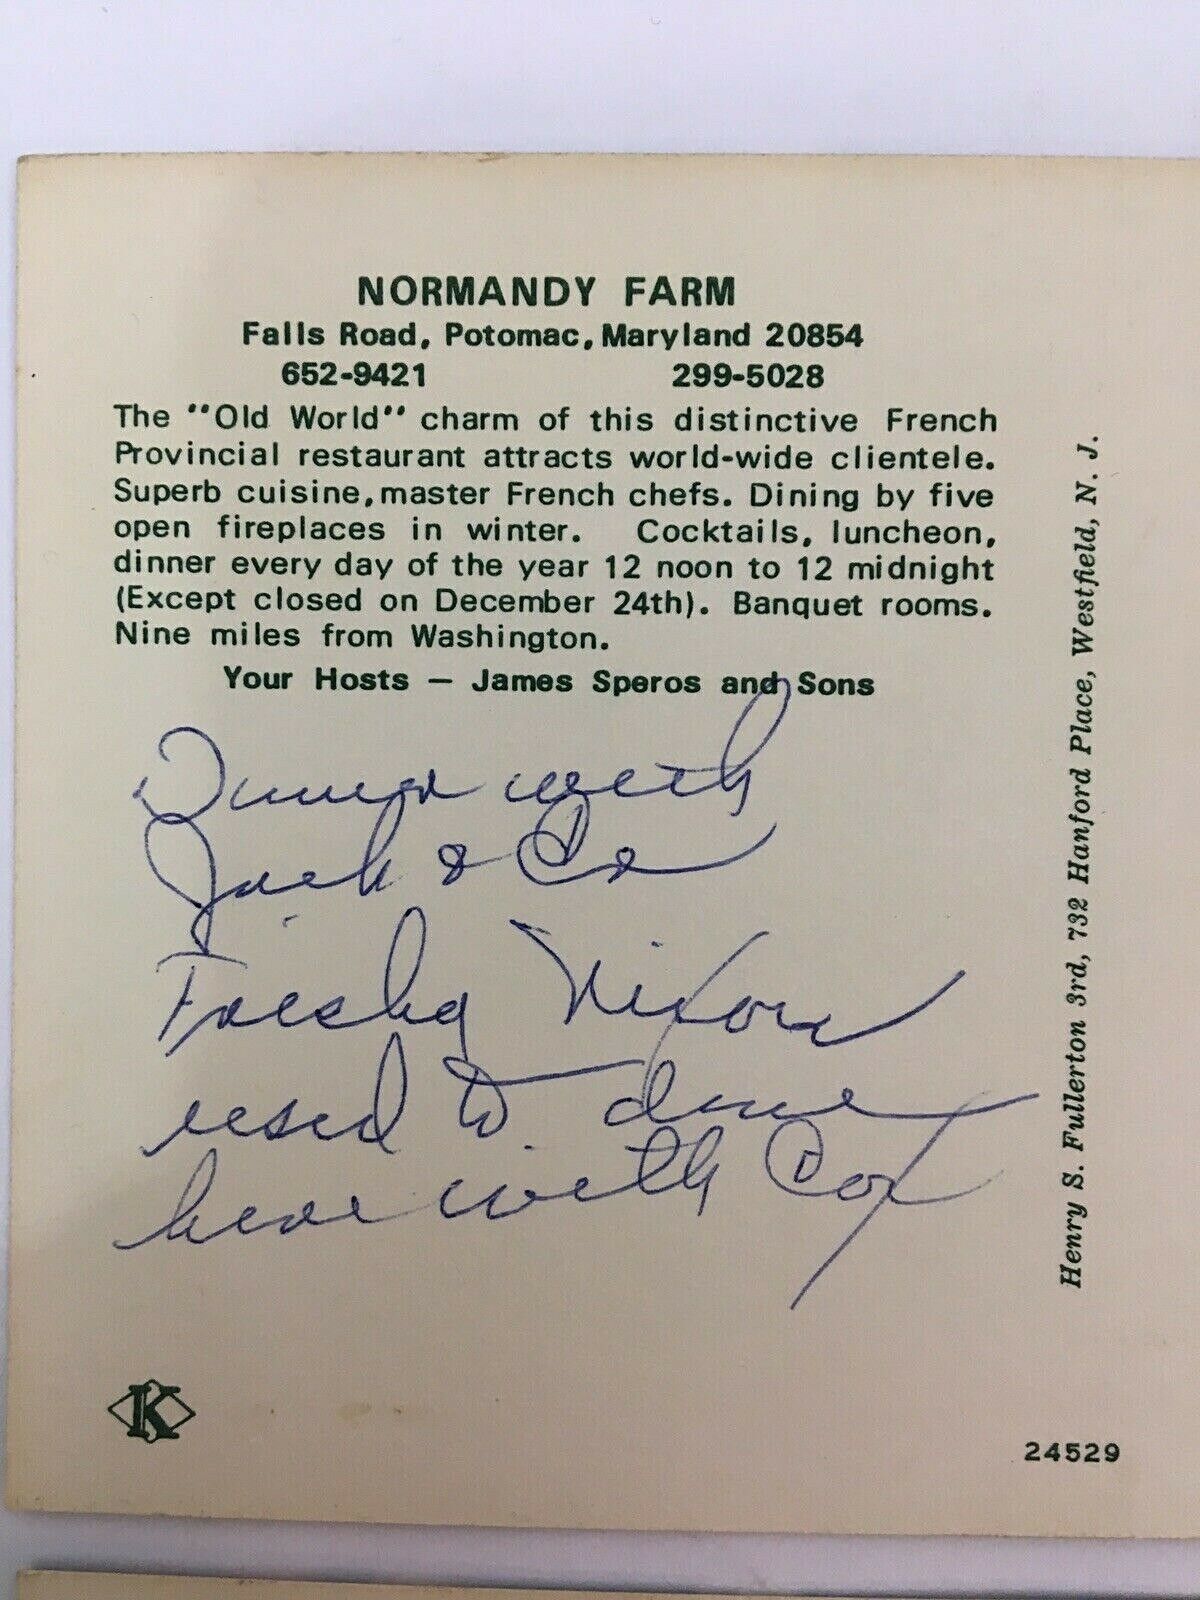 NORMANDY FARM
Falls Road, Potomac, Maryland 20854
652-9421 299-5028
The "Old World" charm of this distinctive French
Provincial restaurant attracts world-wide clientele.
Superb cuisine, master French chefs. Dining by five
open fireplaces in winter. Cocktails, luncheon,
dinner every day of the year 12 noon to 12 midnight
(Except closed on December 24th). Banquet rooms.
Nine miles from Washington.
Your Hosts — James Speros and Sons
Dinner with
Jack & Co
Nixon
used to dine
here with Cox
K
24529
Henry S. Fullerton 3rd, 732 Hanford Place, Westfield, N. J.